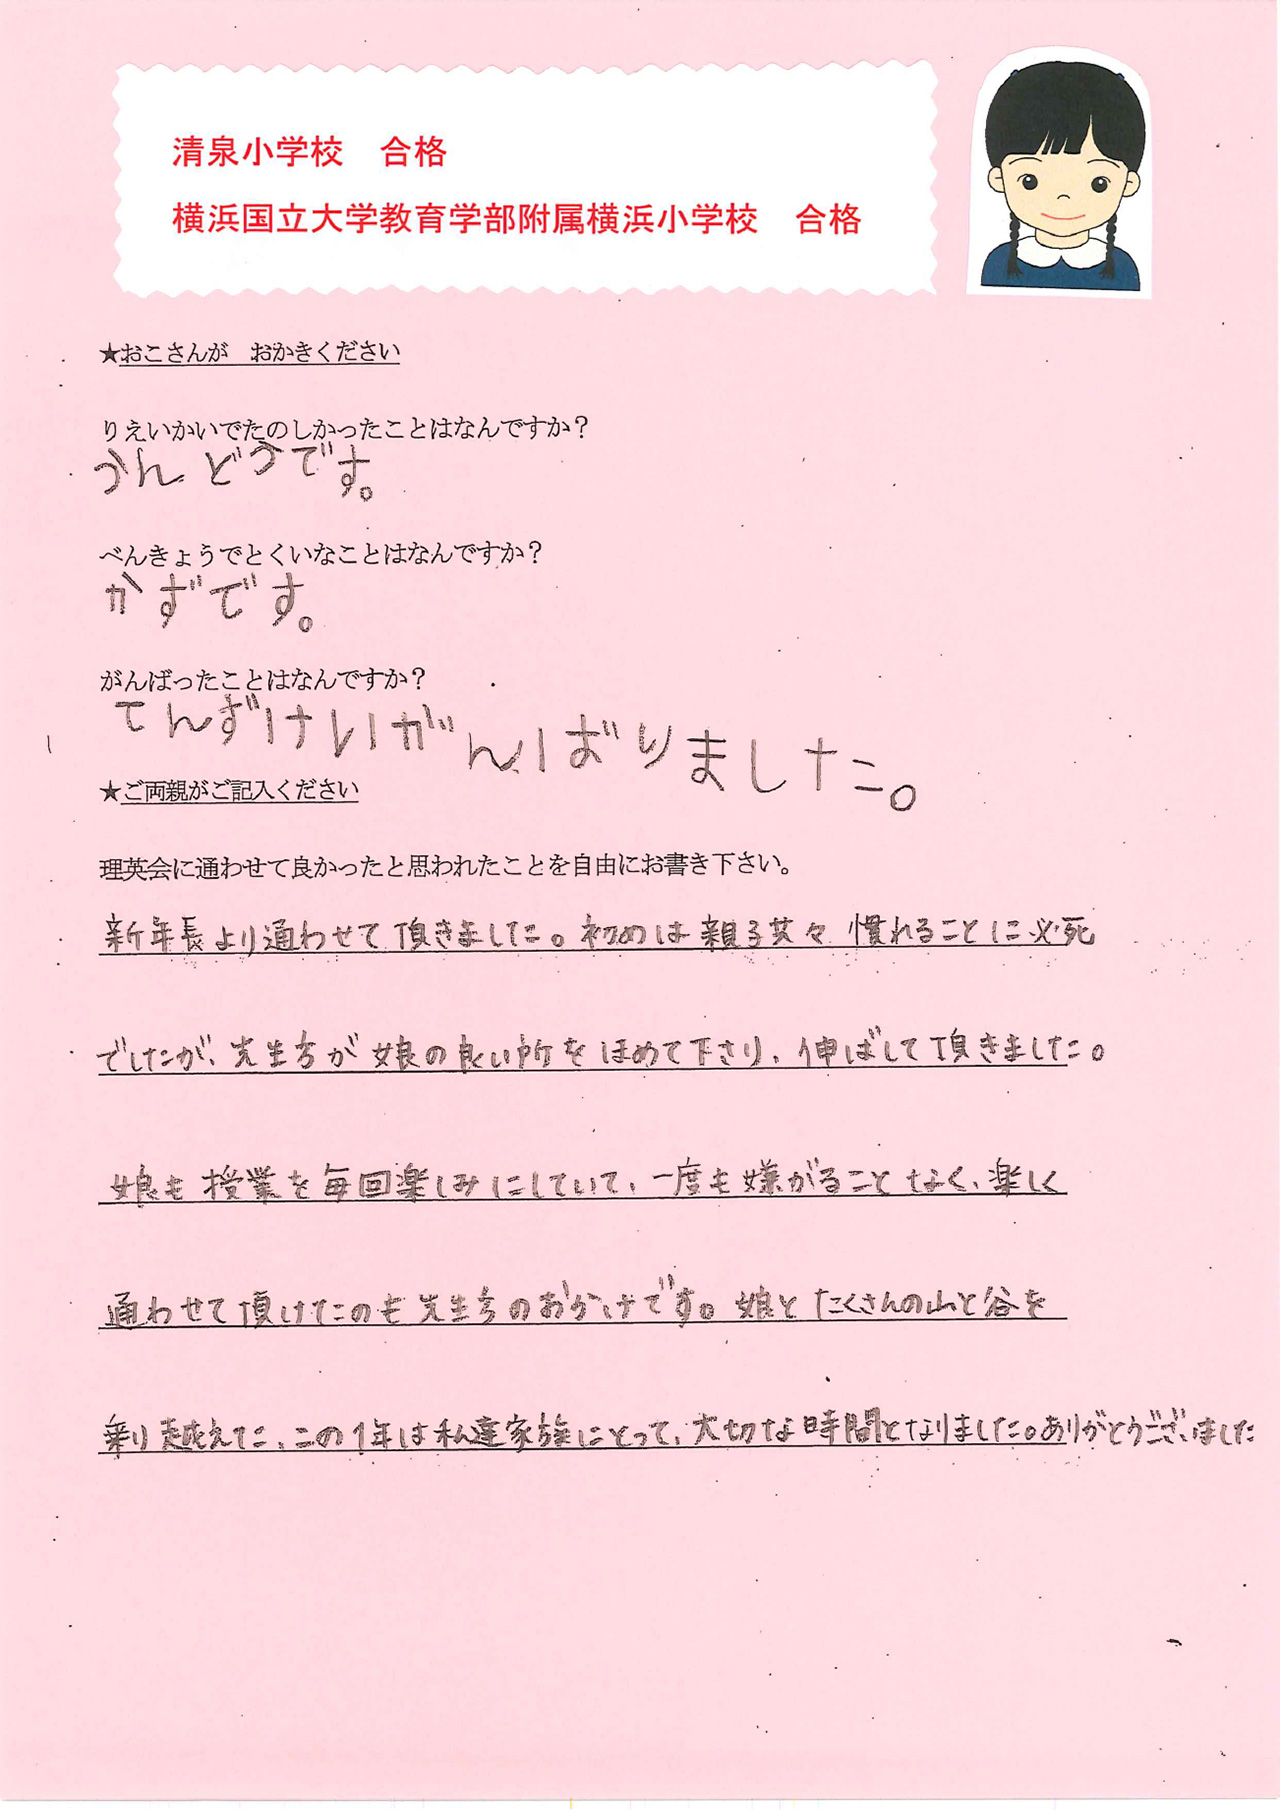 清泉小学校　合格
横浜国立大学教育学部附属横浜小学校　合格
★おこさんが　おかきください
りえいかいでたのしかったことはなんですか？
うんどうです。
べんきょうでとくいなことはなんですか？
かずです。
がんばったことはなんですか？
てんずけいがんばりました。
★ご両親がご記入ください
理英会に通わせて良かったと思われたことを自由にお書き下さい。
新年長より通わせて頂きました。初めは親子共々慣れることに必死
でしたが、先生方が娘の良い所をほめて下さり、伸ばして頂きました。
娘も授業を毎回楽しみにしていて、一度も嫌がることなく、楽しく
通わせて頂けたのも先生方のおかげです。娘とたくさんの山と谷を
乗り越えた、この1年は私達家族にとって、大切な時間となりました。ありがとうございました